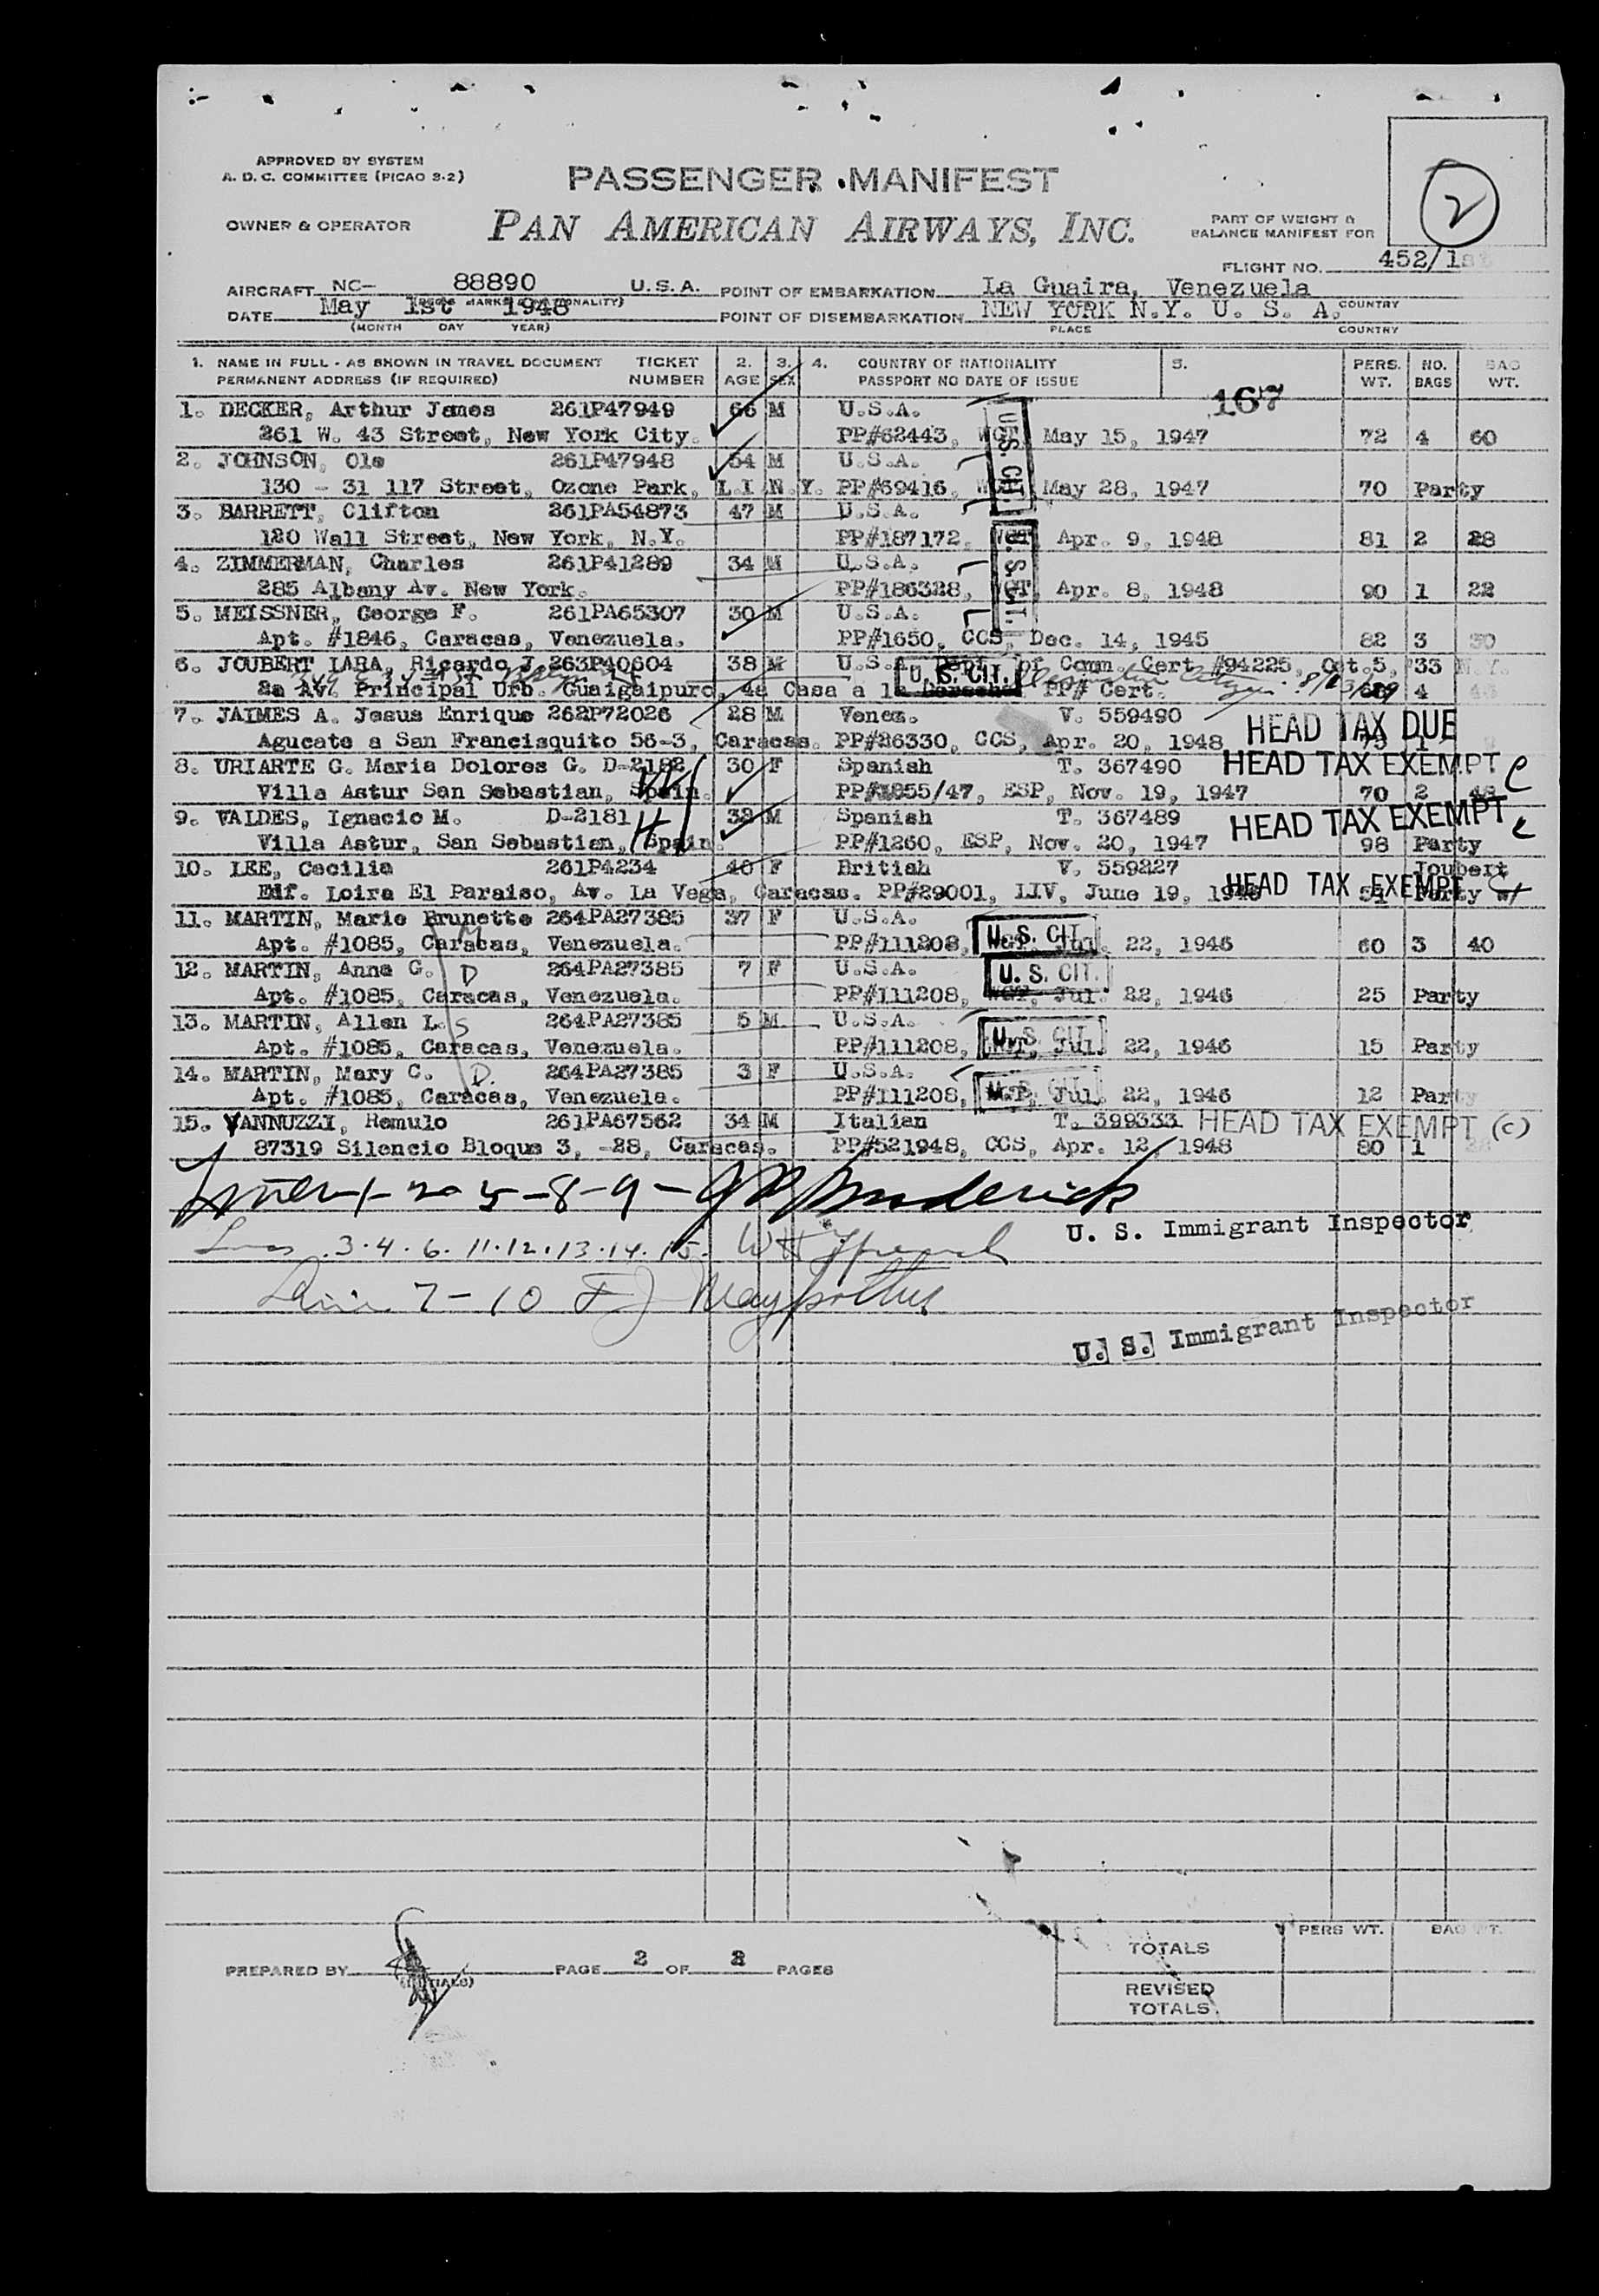 APPROVED BY SYSTEM
A. D. C. COMMITTEE (PICAO S-2)
PASSENGER MANIFEST
2
OWNER & OPERATOR
PAN AMERICAN AIRWAYS, INC.
PART OF WEIGHT &
BALANCE MANIFEST FOR
FLIGHT NO. 452/1st
AIRCRAFT NC- 88890 U.S.A. POINT OF EMBARKATION La Guaira, Venezuela
DATE May 1st 1948 POINT OF DISEMBARKATION NEW YORK N.Y. U. S. A. COUNTRY
(MONTH DAY YEAR) PLACE COUNTRY
1. NAME IN FULL - AS SHOWN IN TRAVEL DOCUMENT TICKET 2. 3. 4. COUNTRY OF NATIONALITY 5. PERS. NO. BAG
PERMANENT ADDRESS (IF REQUIRED) NUMBER AGE SEX PASSPORT NO DATE OF ISSUE WT. BAGS WT.
167
1. DECKER, Arthur James 261P47949 66 M U.S.A.
261 W. 43 Street, New York City. PP#62443, WGT, May 15, 1947 72 4 60
U. S. CIT.
2. JOHNSON, Ole 261P47948 54 M U.S.A.
130 - 31 117 Street, Ozone Park, L.I.N.Y. PP#69416, May 28, 1947 70 Party
3. BARRETT, Clifton 261PA54873 47 M U.S.A.
120 Wall Street, New York, N.Y. PP#187172, WGT, Apr. 9, 1948 81 2 28
U. S. CIT.
4. ZIMMERMAN, Charles 261P41289 34 M U.S.A.
285 Albany Av. New York. PP#186328, WGT, Apr. 8, 1948 90 1 22
5. MEISSNER, George F. 261PA65307 30 M U.S.A.
Apt. #1846, Caracas, Venezuela. PP#1650, CCS, Dec. 14, 1945 82 3 30
6. JOUBERT LARA, Ricardo J. 263P40604 38 M U.S.A. Dept. of Comm. Cert #94225, Oct.5, '33 N.Y.
2a Av. Principal Urb. Guaigaipuro, 4a Casa a la Derecha PP# Cert. 4
U. S. CIT.
7. JAIMES A. Jesus Enrique 262P72026 28 M Venez. V. 559490 HEAD TAX DUE
Aguacate a San Francisquito 56-3, Caracas. PP#26330, CCS, Apr. 20, 1948 75 1
8. URIARTE G. Maria Dolores G. D-2182 30 F Spanish T. 367490 HEAD TAX EXEMPT C
Villa Astur San Sebastian, Spain. PP#1855/47, ESP, Nov. 19, 1947 70 2 48
9. VALDES, Ignacio M. D-2181 38 M Spanish T. 367489 HEAD TAX EXEMPT C
Villa Astur, San Sebastian, Spain. PP#1260, ESP, Nov. 20, 1947 98 Party
10. LEE, Cecilia 261P4234 40 F British V. 559227 Joubert
Edf. Loira El Paraiso, Av. La Vega, Caracas. PP#29001, LIV, June 19, 1946 HEAD TAX EXEMPT 54 Party w/
11. MARTIN, Marie Brunette 264PA27385 37 F U.S.A.
Apt. #1085, Caracas, Venezuela. PP#111208, U. S. CIT. Jul. 22, 1946 60 3 40
12. MARTIN, Anna G. D 264PA27385 7 F U.S.A.
Apt. #1085, Caracas, Venezuela. PP#111208, WGT, Jul. 22, 1946 25 Party
U. S. CIT.
13. MARTIN, Allen L. S 264PA27385 5 M U.S.A.
Apt. #1085, Caracas, Venezuela. PP#111208, Jul. 22, 1946 15 Party
U. S. CIT.
14. MARTIN, Mary C. D. 264PA27385 3 F U.S.A.
Apt. #1085, Caracas, Venezuela. PP#111208, Jul. 22, 1946 12 Party
15. VANNUZZI, Romulo 261PA67562 34 M Italian T. 399333 HEAD TAX EXEMPT (C)
87319 Silencio Bloque 3, -28, Caracas. PP#521948, CCS, Apr. 12, 1948 80 1
1-2-5-8-9- Broderick
U. S. Immigrant Inspector
Lines 3.4.6.11.12.13.14.15. W H French
Line 7-10 F J
U. S. Immigrant Inspector
PREPARED BY (INITIALS) PAGE 2 OF 2 PAGES
TOTALS PERS WT. BAG WT.
REVISED
TOTALS